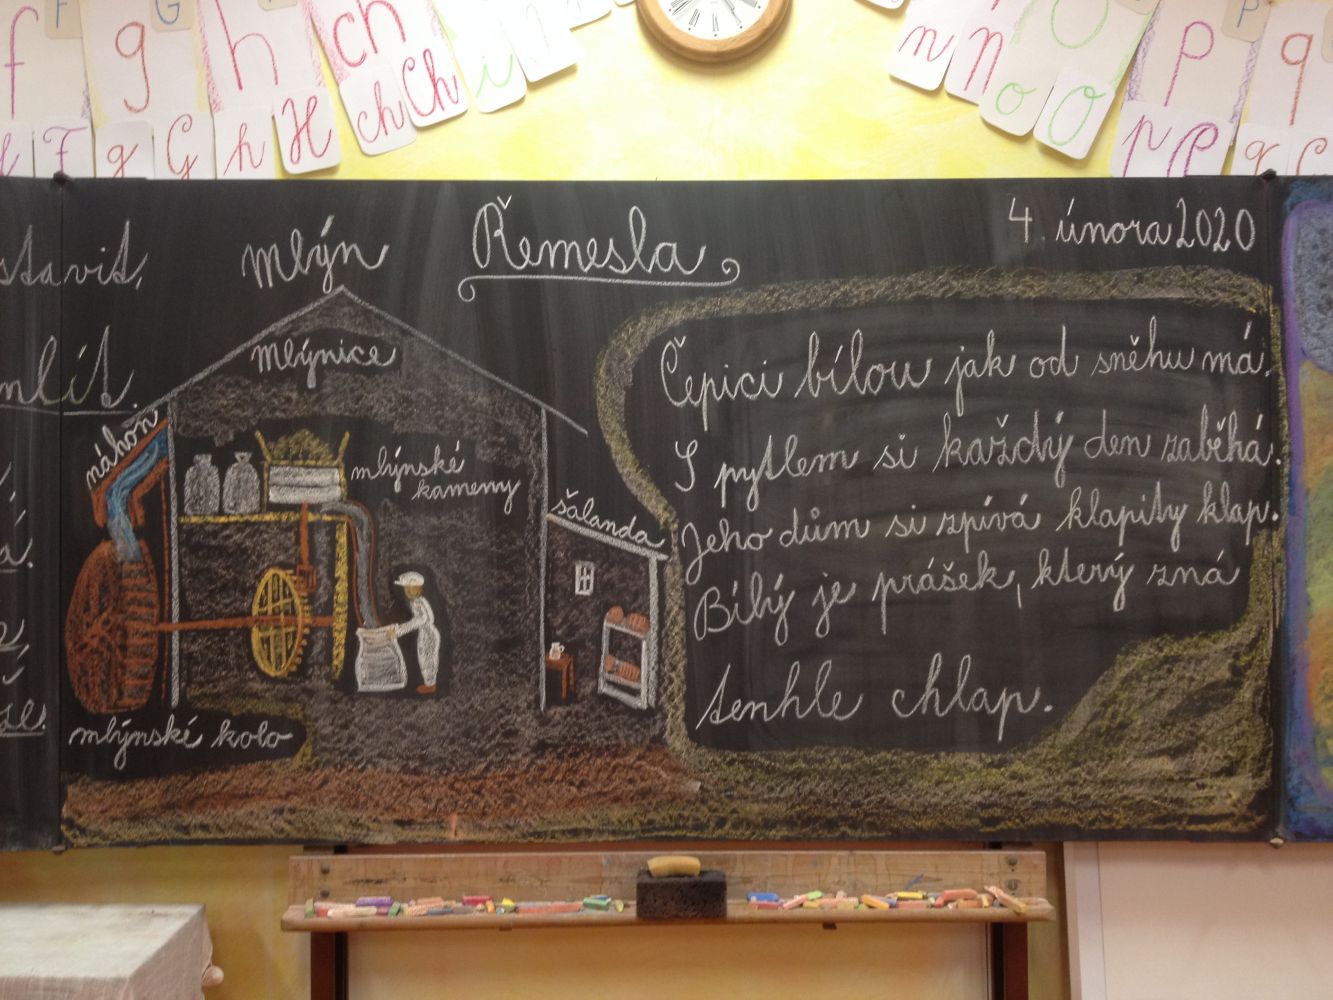 f g h ch Ch i n N o O p q
F g G h H ch Ch p P q
stavit.
mlít.
Mlýn
Řemesla
4. února 2020
mlýnice
náhon
mlýnské
kameny
šalanda
mlýnské kolo
Čepici bílou jak od sněhu má.
S pytlem si každý den zaběhá.
Jeho dům si zpívá klapity klap.
Bílý je prášek, který zná
tenhle chlap.